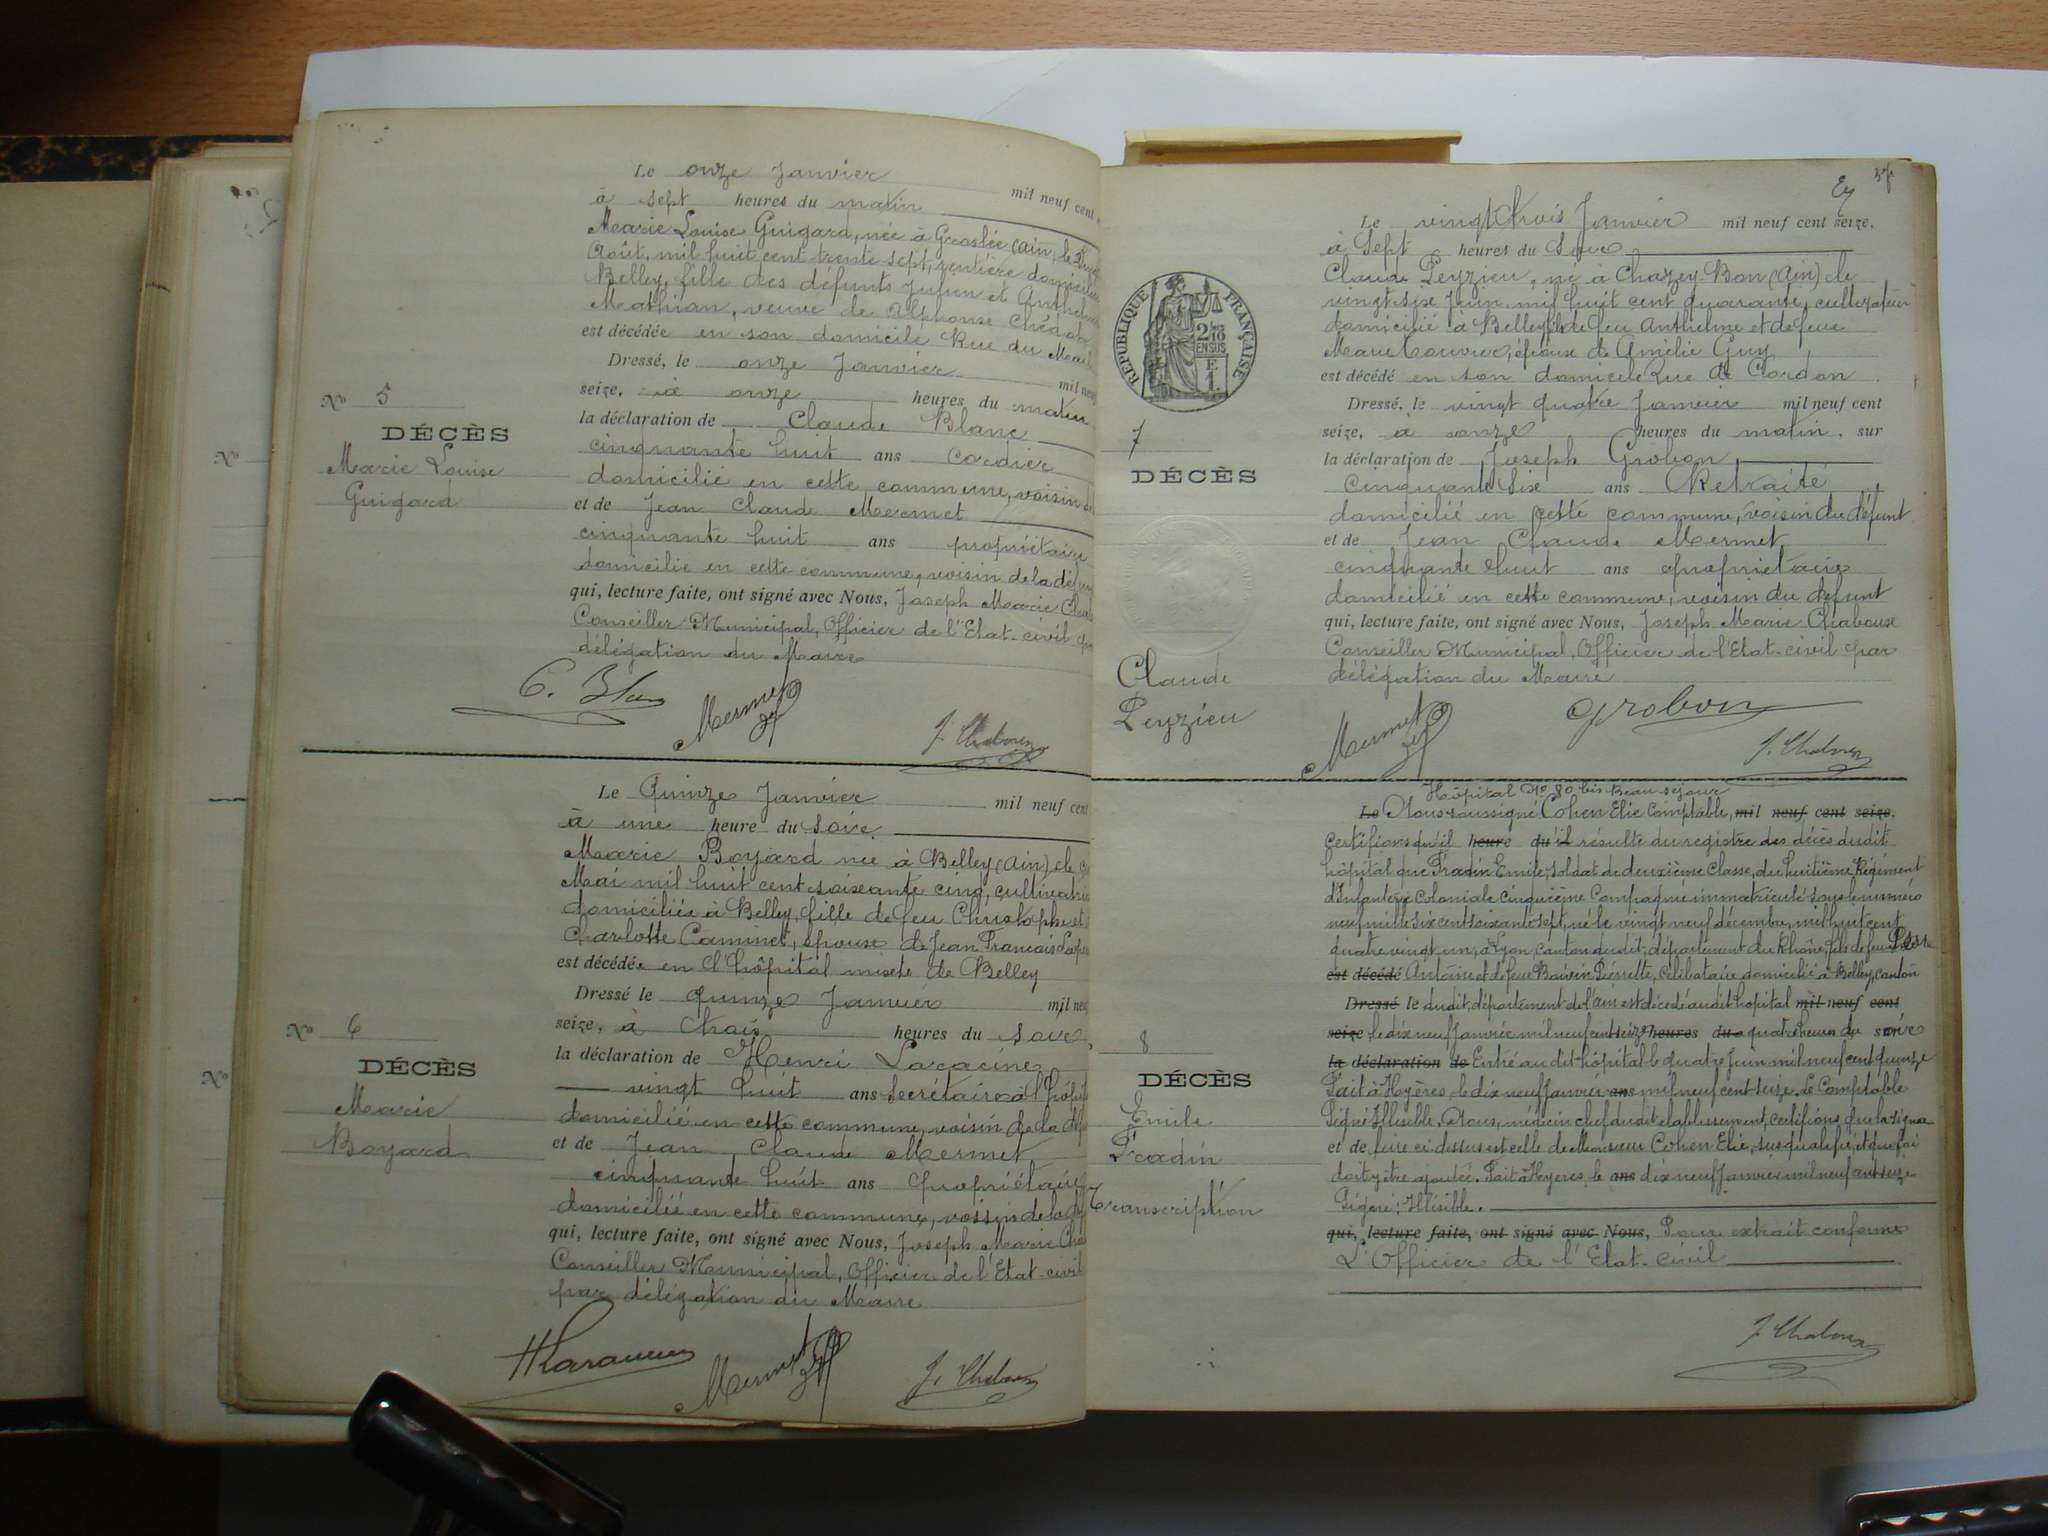 Le onze Janvier mil neuf cent
à sept heures du matin
Marie Louise Guigard, née à Groslée (Ain) le
Août, mil huit cent trente sept, rentière domiciliée
Belley, fille des défunts Julien et
Mathian, veuve de Alphonse
est décédée en son domicile Rue du Mail
Dressé, le onze Janvier mil neuf
seize, à onze heures du matin
la déclaration de Claude Blanc
cinquante huit ans cordier
domicilié en cette commune, voisin de
et de Jean Claude Mermet
cinquante huit ans propriétaire
domicilié en cette commune, voisin de la
qui, lecture faite, ont signé avec Nous, Joseph Marie
Conseiller Municipal, Officier de l'Etat-civil
délégation du Maire
No 5
DÉCÈS
Marie Louise
Guigard
C. Blanc
Mermet
J. Chabouse
Le Quinze Janvier mil neuf cent
à une heure du soir
Marie Boyard née à Belley (Ain) le
Mai mil huit cent soixante cinq, cultivatrice
domiciliée à Belley, fille de feu Christophe et
Charlotte Caminet, épouse de Jean François
est décédée en l'hôpital mixte de Belley
Dressé le quinze Janvier mil neuf
seize, à trois heures du soir,
la déclaration de Henri Laracine
vingt huit ans secrétaire à l'hôpital
domicilié en cette commune, voisin de la
et de Jean Claude Mermet
cinquante huit ans propriétaire
domicilié en cette commune, voisin de la
qui, lecture faite, ont signé avec Nous, Joseph Marie
Conseiller Municipal, Officier de l'Etat-civil
par délégation du Maire
No 6
DÉCÈS
Marie
Boyard
HLaracine
Mermet
J. Chabouse
No
No
Le vingt trois Janvier mil neuf cent seize,
à Sept heures du Soir
Claude Peyzieu, né à Chazey-Bon (Ain) le
vingt six Juin mil huit cent quarante, cultivateur
domicilié à Belley, fils de feu Anthelme et de feue
Marie Couvier, époux de Amélie Guy
est décédé en son domicile Rue de Cordon
Dressé, le vingt quatre Janvier mil neuf cent
seize, à onze heures du matin, sur
la déclaration de Joseph Grobon
Cinquante six ans Retraité
domicilié en cette commune, voisin du défunt
et de Jean Claude Mermet
cinquante huit ans propriétaire
domicilié en cette commune, voisin du défunt
qui, lecture faite, ont signé avec Nous, Joseph Marie Chabouse
Conseiller Municipal, Officier de l'Etat-civil par
délégation du Maire
RÉPUBLIQUE FRANÇAISE
2/10
EN SUS
7
DÉCÈS
Claude
Peyzieu
Mermet
Grobon
J. Chabouse
Hôpital No 80 bis Beau séjour
Le Nous soussigné Cohen Elie Comptable, mil neuf cent seize,
certifions qu'il heure du il résulte du registre des décès dudit
hôpital que Fradin Emile, soldat de deuxième classe, du huitième Régiment
d'Infanterie Coloniale Cinquième Compagnie immatriculé sous le numéro
neuf mille six cent soixante sept, né le vingt neuf décembre, mil huit cent
quatre vingt un, à Lyon, canton dudit, département du Rhône, fils de feu
est décédé Antoine et de feue Pierrette, célibataire domicilié à Belley, canton
Dressé le dudit, département de l'Ain est décédé audit hôpital mil neuf cent
seize le dix neuf Janvier mil neuf cent seize heures du quatre heures du soir
la déclaration de Entré audit hôpital le quatre Juin mil neuf cent quinze
Fait à Hyères le dix neuf Janvier ans mil neuf cent seize. Le Comptable
Signé: Illisible. Nous, médecin chef dudit établissement, certifions que la signa-
et de ture ci-dessus est celle de Monsieur Cohen Elie, susqualifié, et que foi
doit y être ajoutée. Fait à Hyères, le ans dix neuf Janvier mil neuf cent seize
Signé: Illisible.
qui, lecture faite, ont signé avec Nous, Pour extrait conforme
L'Officier de l'Etat-civil
8
DÉCÈS
Emile
Fradin
Transcription
J. Chabouse